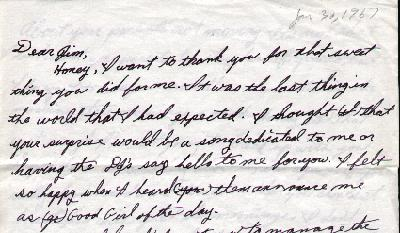 Jan 30, 1967
Dear Jim,
Honey, I want to thank you for that sweet
thing you did for me. It was the last thing in
the world that I had expected. I thought that
your surprise would be a song dedicated to me or
having the DJ's say hello to me for you. I felt
so happy when I heard them announce me
as Good Girl of the day.
manage the